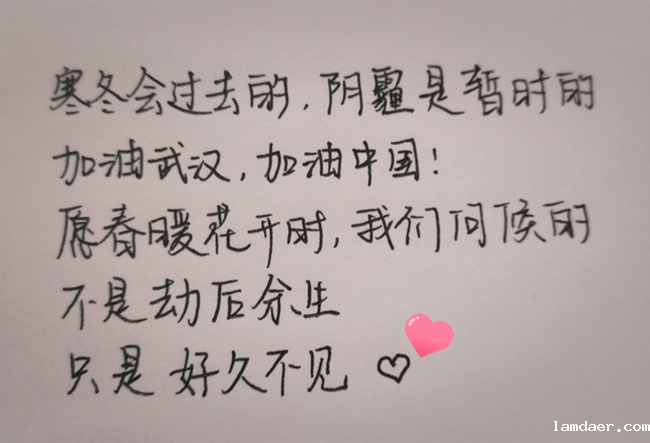 寒冬会过去的,阴霾是暂时的
加油武汉,加油中国!
愿春暖花开时,我们问候的
不是劫后余生
只是 好久不见 ♡
lamdaer.com